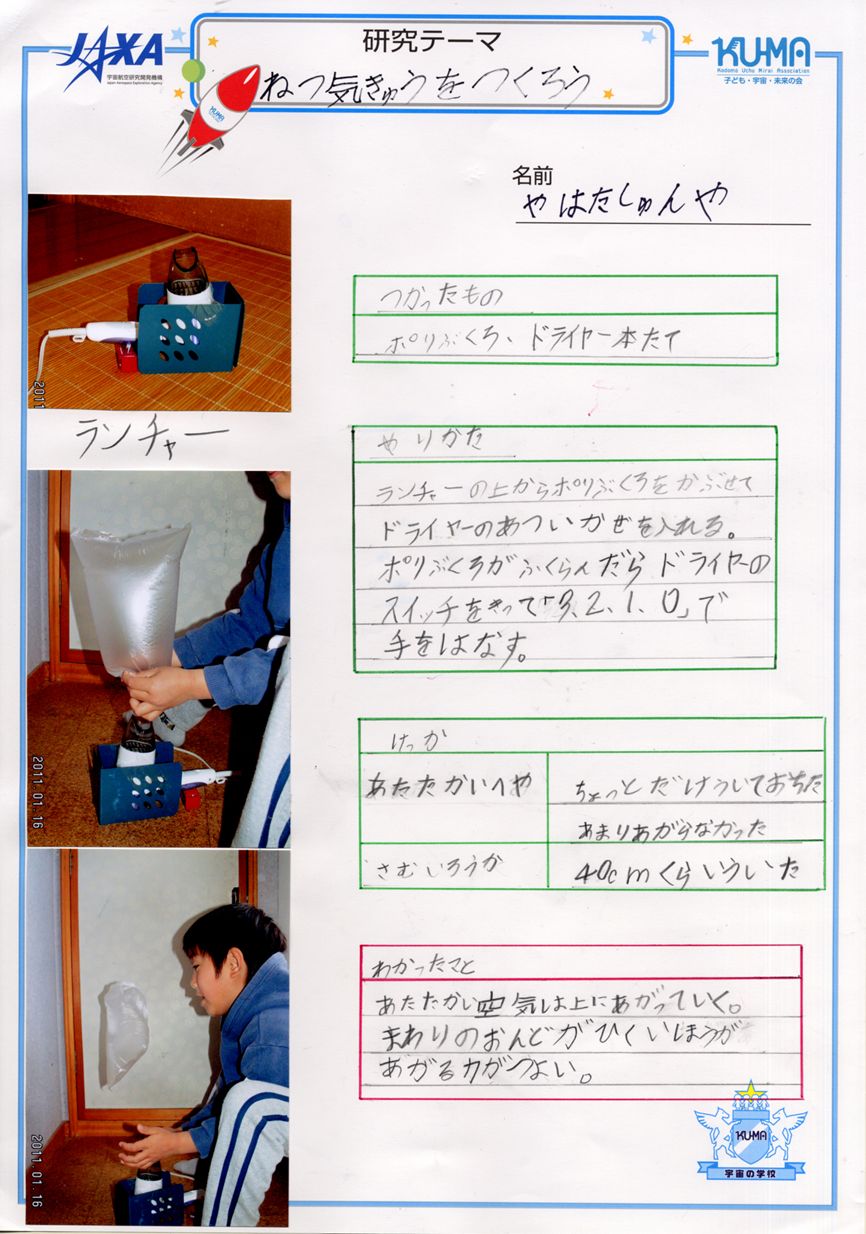 JAXA
宇宙航空研究開発機構
Japan Aerospace Exploration Agency
研究テーマ
ねつ気きゅうをつくろう
KUMA
KU-MA
Kodomo Uchu Mirai Association
子ども・宇宙・未来の会
名前
やはたしゅんや
つかったもの
ポリぶくろ、ドライヤー本たて
2011
ランチャー
やりかた
ランチャーの上からポリぶくろをかぶせて
ドライヤーのあついかぜを入れる。
ポリぶくろがふくらんだらドライヤーの
スイッチをきって「3、2、1、0」で
手をはなす。
2011.01.16
けっか
あたたかいへや
ちょっとだけういておちた
あまりあがらなかった
さむいろうか
40cmくらいういた
わかったこと
あたたかい空気は上にあがっていく。
まわりのおんどがひくいほうが
あがる力がつよい。
2011.01.16
KU-MA
宇宙の学校